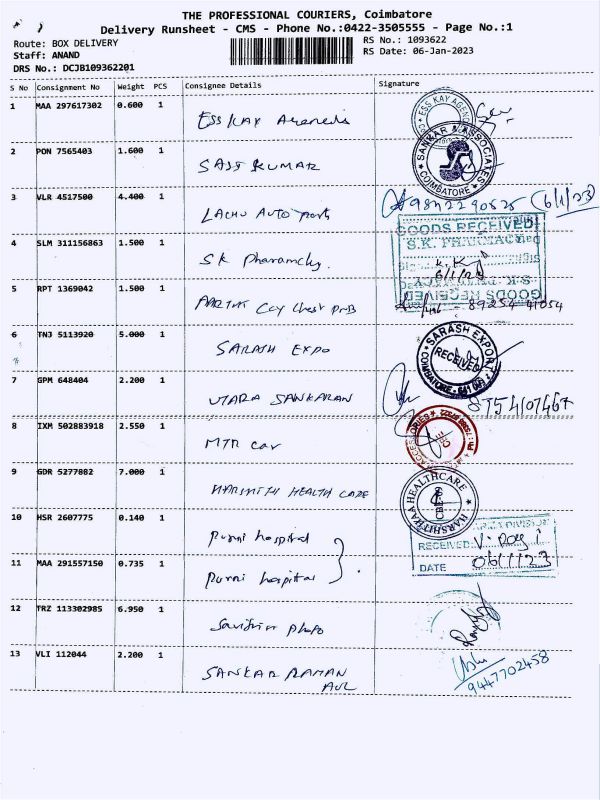 THE PROFESSIONAL COURIERS, Coimbatore
Delivery Runsheet - CMS - Phone No.:0422-3505555 - Page No.:1
Route: BOX DELIVERY
RS No.: 1093622
Staff: ANAND
RS Date: 06-Jan-2023
DRS No.: DCJB109362201
S No Consignment No Weight PCS Consignee Details Signature
1 MAA 297617302 0.600 1 ESSKAY Agencies
ESS KAY AGEN
2 PON 7565403 1.600 1 SAJJ KUMAR
SANKAR & ASSOCIATES COIMBATORE
3 VLR 4517500 4.400 1 LACHU AUTO parts (6/1/23)
GOODS RECEIVED
S.K. PHARMACY
4 SLM 311156863 1.500 1 S.K Pharamcky.
GOODS RECEIVED
5 RPT 1369042 1.500 1 89254 41054
6 TNJ 5113920 5.000 1 SARASH EXPO
SARASH EXPORT RECEIVED COIMBATORE
7 GPM 648404 2.200 1 UTARA SANKARAN
8 IXM 502883918 2.550 1 MTR car
ACCESSORIES
9 GDR 5277882 7.000 1 HARSHITH HEALTH CARE
HARSHITHAA HEALTHCARE CBE
10 HSR 2607775 0.140 1 hospital
DIVISION
RECEIVED
DATE 06/1/23
11 MAA 291557150 0.735 1 hospital
12 TRZ 113302985 6.950 1 photo
13 VLI 112044 2.200 1 SANKAR RAMAN
9447702458